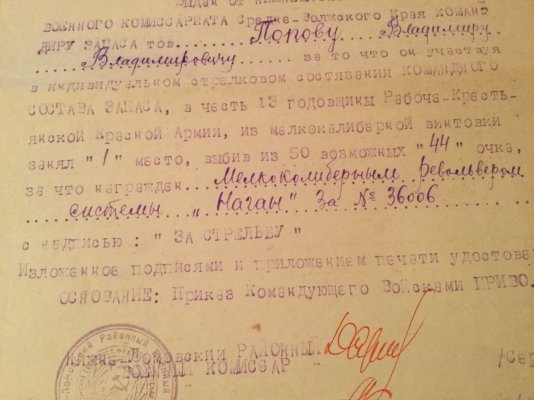 ВОЕННОГО КОМИССАРИАТА Средне-Волжского Края КОМАН-
ДИРУ ЗАПАСА тов. Попову Владимиру
Владимировичу за то что он участвуя
в индивидуальном стрелковом состязании КОМАНДНОГО
СОСТАВА ЗАПАСА, в честь 13 годовщины Рабоче-Кресть-
янской Красной Армии, из мелкокалиберной винтовки
занял "1" место, выбив из 50 возможных "44" очка,
за что награжден Мелкокалиберным Револьвером
системы „Наган" За № 36006
с надписью: " ЗА СТРЕЛЬБУ "
Изложенное подписями и приложением печати удостове
ОСНОВАНИЕ: Приказ Командующего Войсками ПРИВО.
Ломовский РАЙОННЫ
ВОЕННЫЙ КОМИССАР